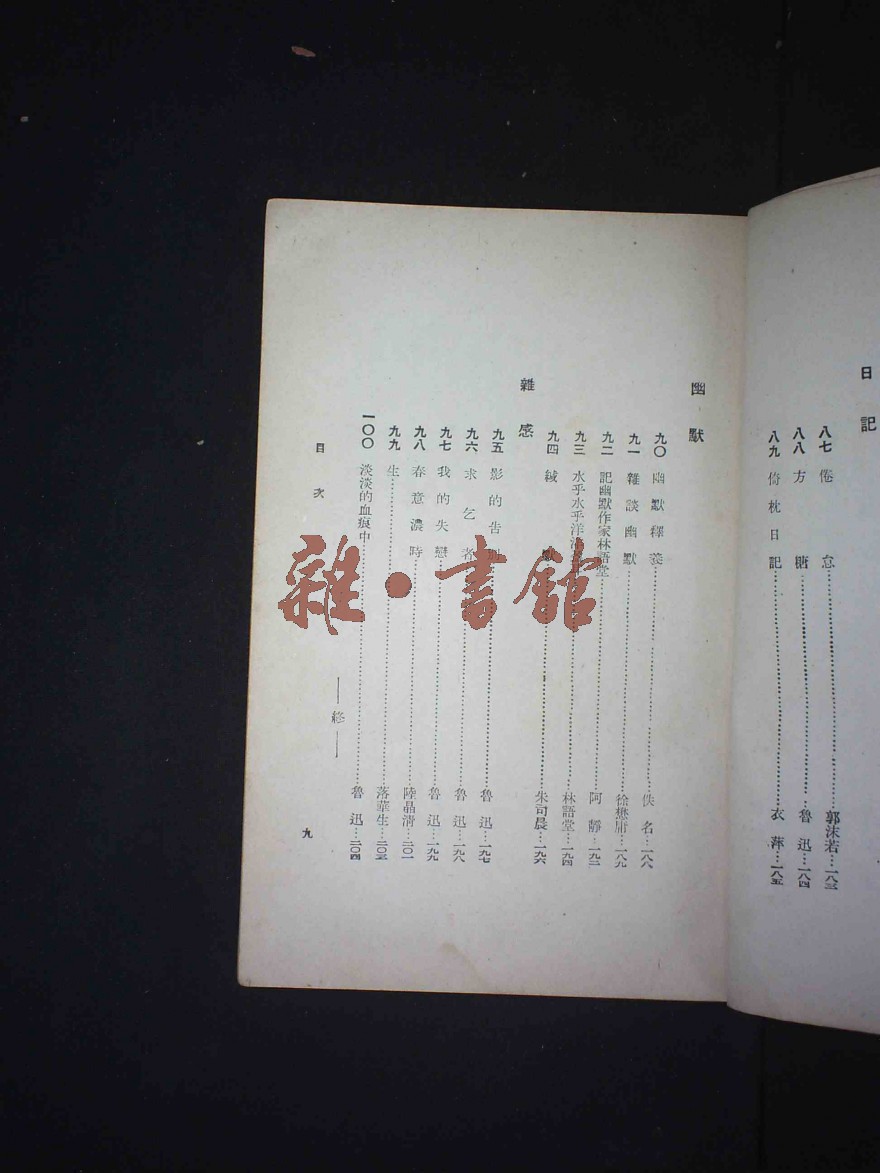 日記
八七 倦怠……郭沫若…一八三
八八 方塘……魯迅…一八四
八九 倚枕日記……衣萍…一八五
幽默
九〇 幽默釋義……佚名…一八六
九一 雜談幽默……徐懋庸…一八九
九二 記幽默作家林語堂……阿靜…一九二
九三 水乎水乎洋……林語堂…一九四
九四 緘默……朱司晨…一九六
雜感
九五 影的告別……魯迅…一九七
九六 求乞者……魯迅…一九八
九七 我的失戀……魯迅…一九九
九八 春意濃時……陸晶清…二〇一
九九 生……落華生…二〇三
一〇〇 淡淡的血痕中……魯迅…二〇四
——終——
目次
九
雜·書館